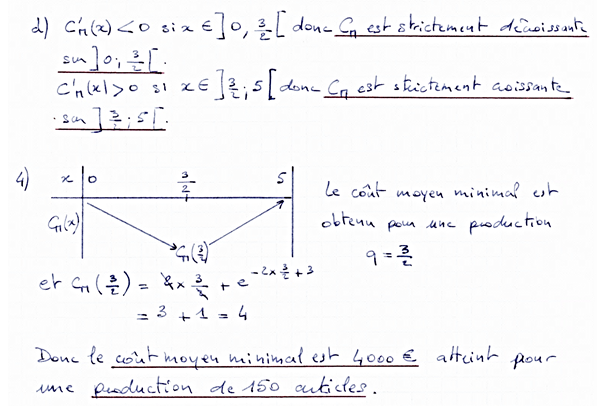 d) C'ₘ(x) < 0 si x ∈ ]0, 3/2[ donc Cₘ est strictement décroissante
sur ]0; 3/2[.
C'ₘ(x) > 0 si x ∈ ]3/2; 5[ donc Cₘ est strictement croissante
sur ]3/2; 5[.
4) x 0 3/2 5
Cₘ(x) Cₘ(3/2)
Le coût moyen minimal est
obtenu pour une production
q = 3/2
et Cₘ(3/2) = 2 × 3/2 + e^(-2×3/2+3)
= 3 + 1 = 4
Donc le coût moyen minimal est 4000 € atteint pour
une production de 150 articles.